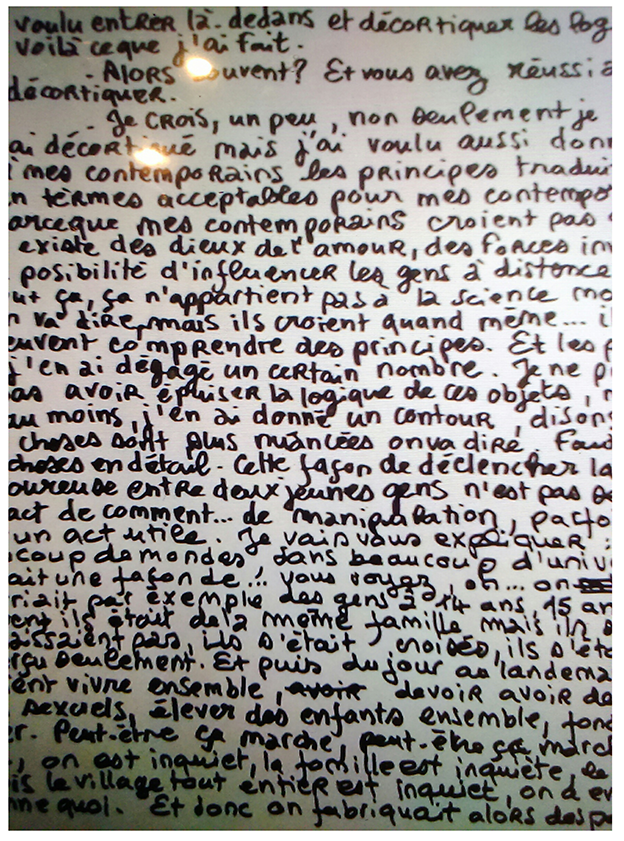 voulu entrer là-dedans et décortiquer les log
voilà ce que j'ai fait.
- Alors ouvent? Et vous avez réussi à
décortiquer.
- Je crois, un peu, non seulement je
ai décortiqué mais j'ai voulu aussi donn
mes contemporains les principes tradui
n termes acceptables pour mes contempo
arceque mes contemporains croient pas
existe des dieux de l'amour, des forces inv
posibilité d'influencer les gens à distance
ut ça, ça n'appartient pas à la science mo
n va dire, mais ils croient quand même... i
euvent comprendre des principes. Et les p
j'en ai dégagé un certain nombre. Je ne p
as avoir épuiser la logique de ces objets,
au moins, j'en ai donné un contour, disons
choses sont plus nuancées on va dire. Faud
choses en détail. Cette façon de déclencher la
oureuse entre deux jeunes gens n'est pas
act de comment... de manipulation, parfo
un act utile. Je vais vous expliquer :
coup de mondes dans beaucoup d'univ
ait une façon de... vous voyez, on... on
riait par exemple des gens à 14 ans, 15 an
ils était de la même famille mais ils
aissaient pas, ils s'était croisés, ils s'éta
rçu seulement. Et puis du jour au landema
ient vivre ensemble, avoir devoir avoir de
sexuels, élever des enfants ensemble, fond
er. Peut-être ça marche, peut-être ça march
, on est inquiet, la famille est inquiète, le
is le village tout entier est inquiet, on dev
ne quoi. Et donc on fabriquait alors des p